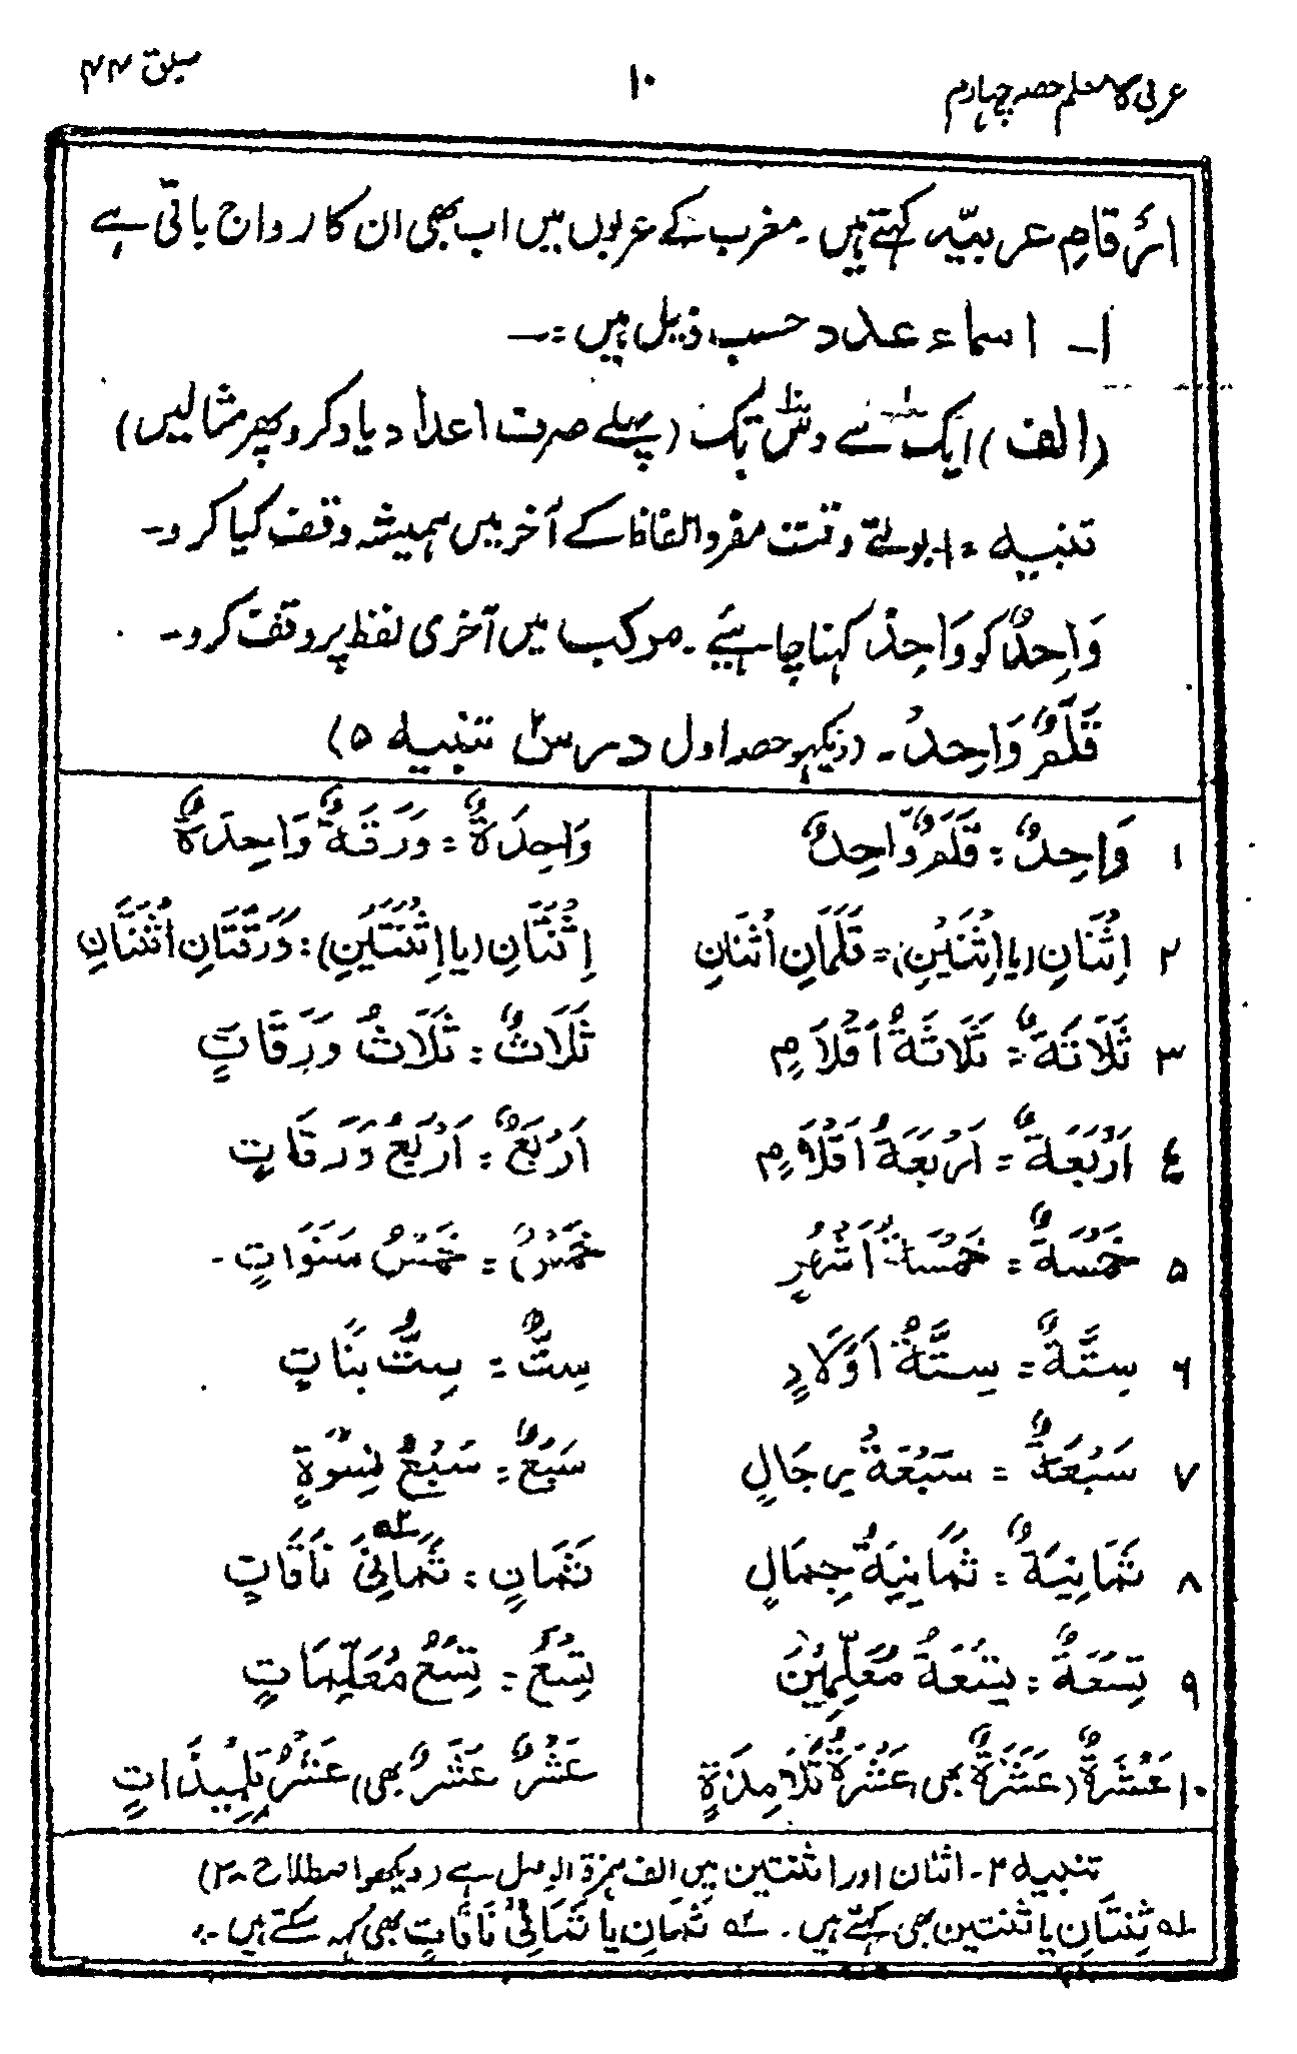 عربی کا معلم حصہ چہارم
۱۰
سبق ۴۴
ارقامِ عربیّہ کہتے ہیں۔ مغرب کے عربوں میں اب بھی ان کا رواج باقی ہے
۱۔ اسماء عدد حسب ذیل ہیں :۔
(الف) ایک سے دس تک (پہلے صرف اعداد یاد کرو پھر مثالیں)
تنبیہ ۱۔ بولتے وقت مفرد الفاظ کے آخر میں ہمیشہ وقف کیا کرو۔
وَاحِدٌ کو وَاحِدْ کہنا چاہئیے۔ مرکب میں آخری لفظ پر وقف کرو۔
قَلَمٌ وَاحِدْ۔ (دیکھو حصہ اول درس ۲ تنبیہ ۵)
۱ وَاحِدٌ = قَلَمٌ وَّاحِدٌ وَاحِدَةٌ = وَرَقَةٌ وَاحِدَةٌ
۲ اِثْنَانِ (یا اِثْنَيْنِ) = قَلَمَانِ اثْنَانِ اِثْنَتَانِ (یا اِثْنَتَيْنِ) = وَرَقَتَانِ اثْنَتَانِ
۳ ثَلَاثَةٌ = ثَلَاثَةُ اَقْلَامٍ ثَلَاثٌ = ثَلَاثُ وَرَقَاتٍ
٤ اَرْبَعَةٌ = اَرْبَعَةُ اَقْلَامٍ اَرْبَعٌ = اَرْبَعُ وَرَقَاتٍ
۵ خَمْسَةٌ = خَمْسَةُ اَشْهُرٍ خَمْسٌ = خَمْسُ سَنَوَاتٍ۔
۶ سِتَّةٌ = سِتَّةُ اَوْلَادٍ سِتٌّ = سِتُّ بَنَاتٍ
۷ سَبْعَةٌ = سَبْعَةُ رِجَالٍ سَبْعٌ = سَبْعُ نِسْوَةٍ
۸ ثَمَانِيَةٌ = ثَمَانِيَةُ جِمَالٍ ثَمَانٍ = ثَمَانِیَ ۲؎ نَاقَاتٍ
۹ تِسْعَةٌ = تِسْعَةُ مُعَلِّمِيْنَ تِسْعٌ = تِسْعُ مُعَلِّمَاتٍ
۱۰ عَشْرَةٌ (عَشَرَةٌ بھی) عَشْرَةُ تَلَامِذَةٍ عَشْرٌ عَشَرٌ بھی) عَشْرُ تِلْمِيْذَاتٍ
تنبیہ ۲۔ اثنان اور اثنتین میں الف ہمزۃ الوصل ہے (دیکھو اصطلاح ۲۸)
۱؎ ثِنْتَانِ یا ثنتین بھی کہتے ہیں۔ ۲؎ ثَمَانِ یا ثَمَانِیْ نَاقَاتٍ بھی کہہ سکتے ہیں۔